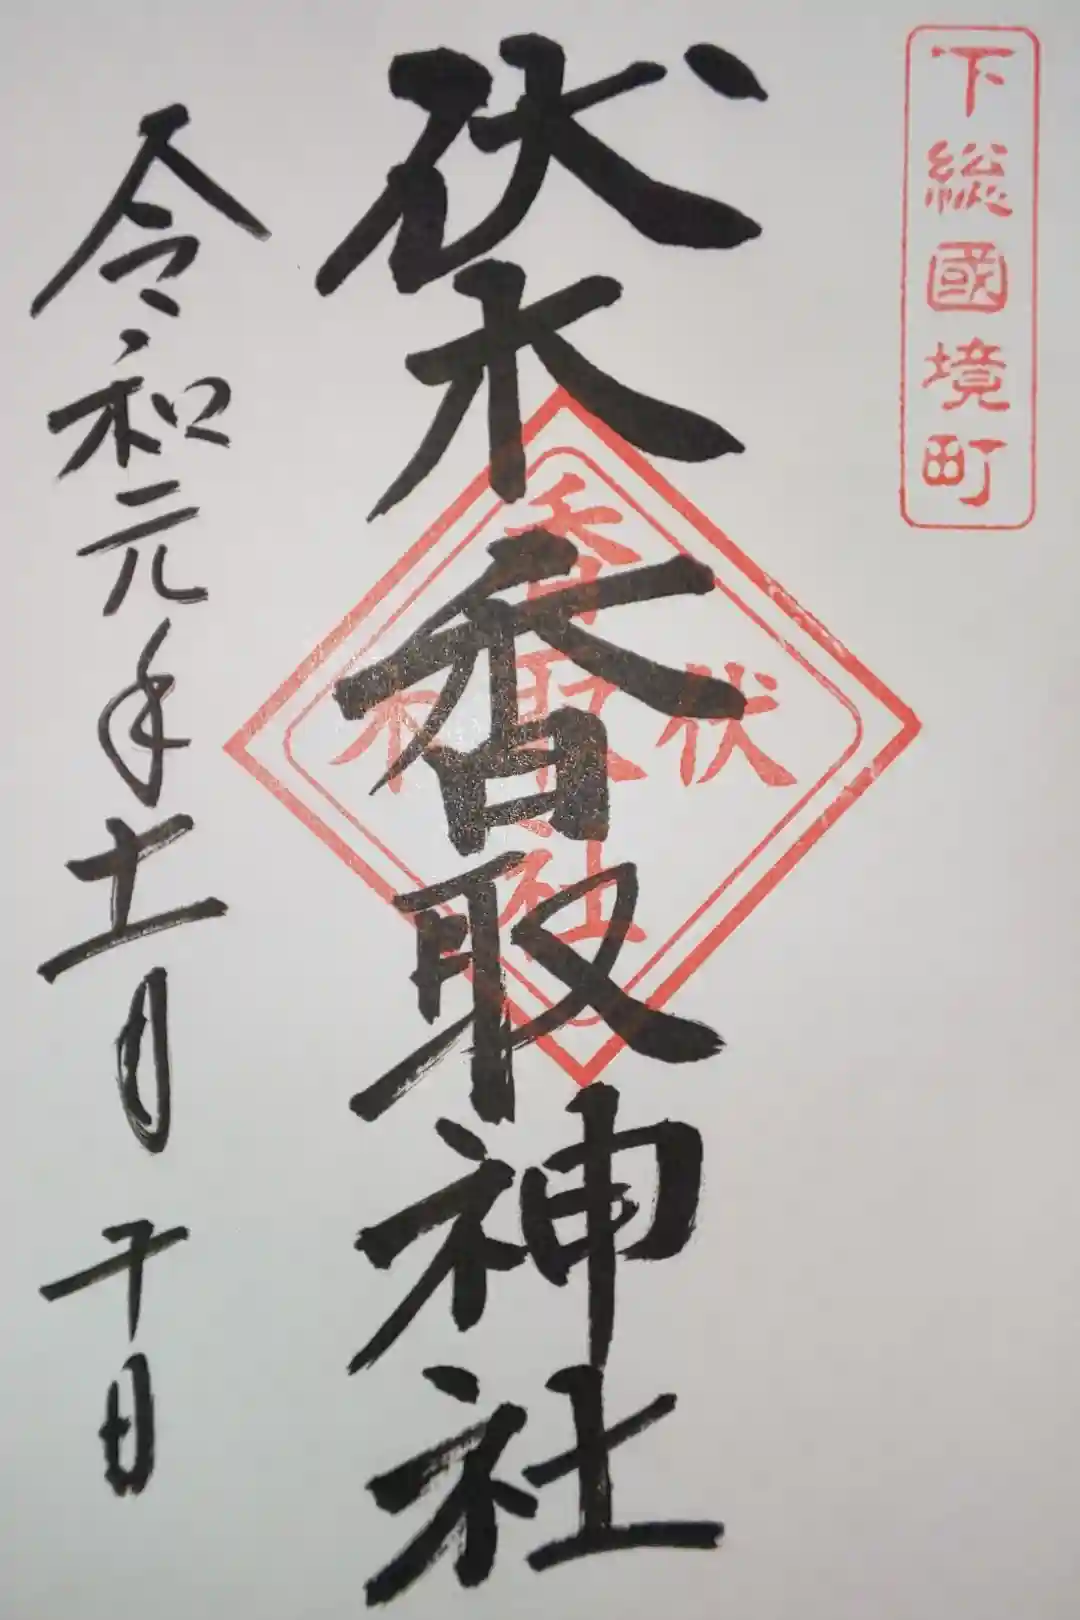 下総國境町
伏木香取神社
伏木
香取社
令和元年十一月十日